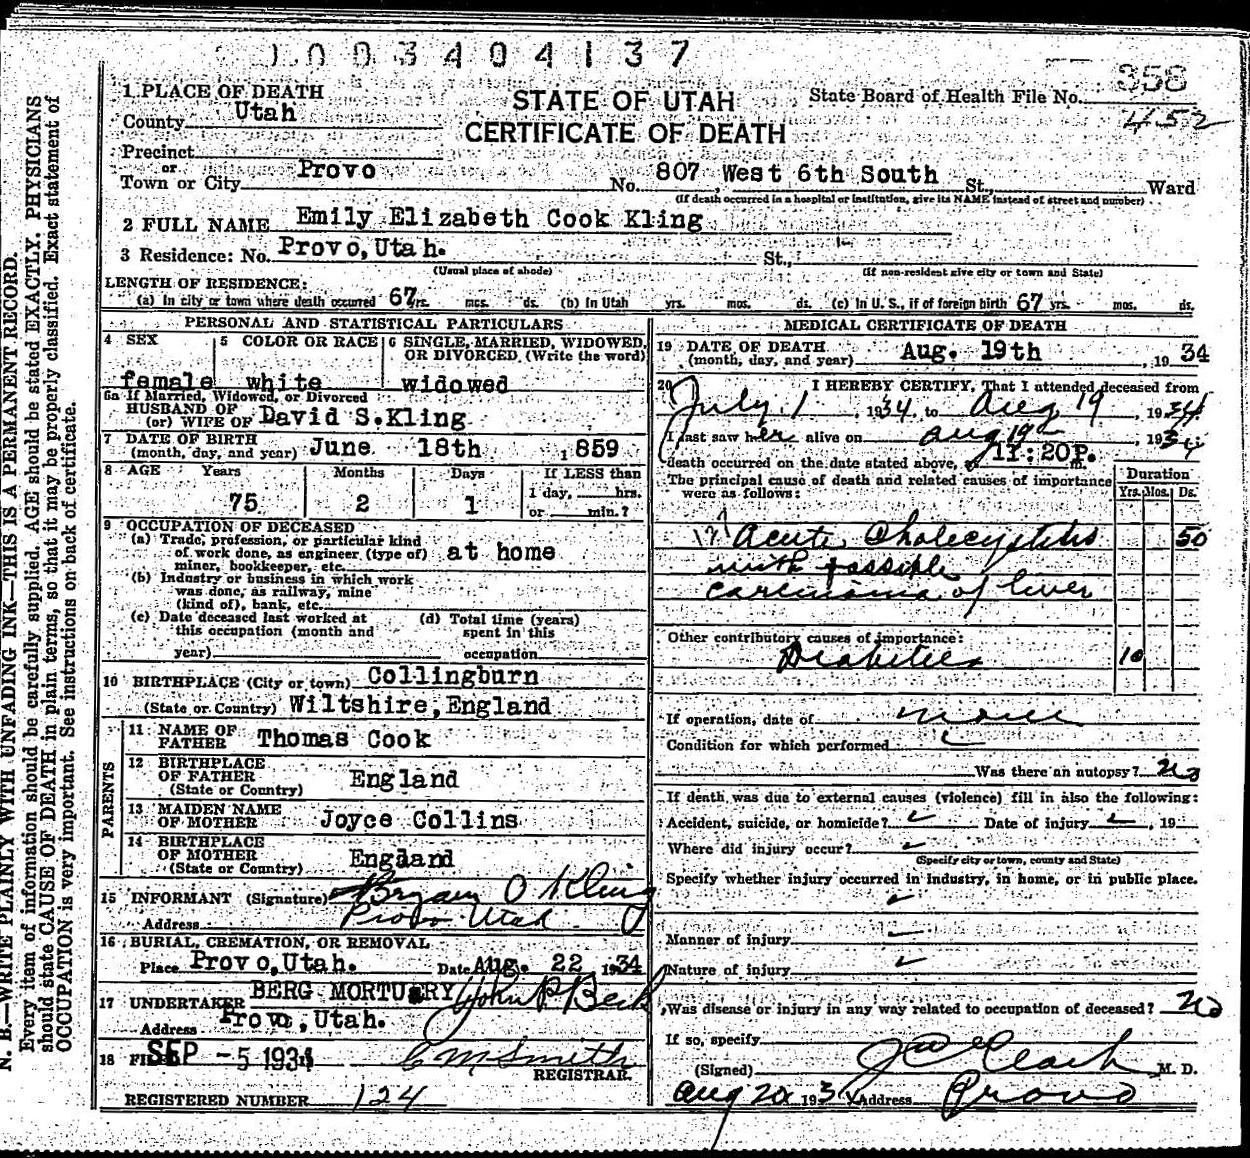 1003404137
STATE OF UTAH
CERTIFICATE OF DEATH
State Board of Health File No. 358
452
1 PLACE OF DEATH
County Utah
Precinct
or
Town or City Provo No. 807 West 6th South St., Ward
(If death occurred in a hospital or institution, give its NAME instead of street and number)
2 FULL NAME Emily Elizabeth Cook Kling
3 Residence: No. Provo, Utah. St.,
(Usual place of abode) (If non-resident give city or town and State)
LENGTH OF RESIDENCE:
(a) In city or town where death occurred 67 yrs. mos. ds. (b) In Utah yrs. mos. ds. (c) In U. S., if of foreign birth 67 yrs. mos. ds.
PERSONAL AND STATISTICAL PARTICULARS
4 SEX
female
5 COLOR OR RACE
white
6 SINGLE, MARRIED, WIDOWED, OR DIVORCED (Write the word)
widowed
6a If Married, Widowed, or Divorced
HUSBAND OF
(or) WIFE OF David S.Kling
7 DATE OF BIRTH
(month, day, and year) June 18th 1859
8 AGE Years Months Days If LESS than
75 2 1 1 day, hrs.
or min.?
9 OCCUPATION OF DECEASED
(a) Trade, profession, or particular kind
of work done, as engineer (type of)
miner, bookkeeper, etc. at home
(b) Industry or business in which work
was done, as railway, mine
(kind of), bank, etc.
(c) Date deceased last worked at
this occupation (month and
year)
(d) Total time (years)
spent in this
occupation
10 BIRTHPLACE (City or town) Collingburn
(State or Country) Wiltshire, England
PARENTS
11 NAME OF
FATHER Thomas Cook
12 BIRTHPLACE
OF FATHER England
(State or Country)
13 MAIDEN NAME
OF MOTHER Joyce Collins
14 BIRTHPLACE
OF MOTHER England
(State or Country)
15 INFORMANT (Signature) Bryan O Kling
Address Provo Utah
16 BURIAL, CREMATION, OR REMOVAL
Place Provo, Utah. Date Aug. 22 1934
17 UNDERTAKER BERG MORTUARY John P Beck
Address Provo, Utah.
18 FILED SEP -5 1934 C M Smith
REGISTRAR.
REGISTERED NUMBER 124
MEDICAL CERTIFICATE OF DEATH
19 DATE OF DEATH
(month, day, and year) Aug. 19th, 1934
20 I HEREBY CERTIFY, That I attended deceased from
July 1, 1934, to Aug 19, 1934
I last saw her alive on Aug 19, 1934
death occurred on the date stated above, at 11:20P. m.
The principal cause of death and related causes of importance
were as follows:
Duration
Yrs. Mos. Ds.
Acute Cholecystitis 50
with possible
carcinoma of liver
Other contributory causes of importance:
Diabetes 10
If operation, date of none
Condition for which performed
Was there an autopsy? No
If death was due to external causes (violence) fill in also the following:
Accident, suicide, or homicide? Date of injury , 19
Where did injury occur?
(Specify city or town, county and State)
Specify whether injury occurred in industry, in home, or in public place.
Manner of injury
Nature of injury
Was disease or injury in any way related to occupation of deceased? No
If so, specify
(Signed) Clark M. D.
Aug 20 1934 Address Provo
N. B.—WRITE PLAINLY WITH UNFADING INK—THIS IS A PERMANENT RECORD.
Every item of information should be carefully supplied. AGE should be stated EXACTLY. PHYSICIANS
should state CAUSE OF DEATH in plain terms, so that it may be properly classified. Exact statement of
OCCUPATION is very important. See instructions on back of certificate.